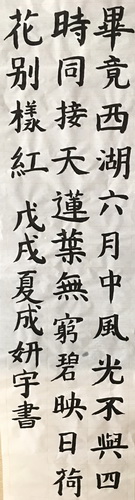 畢竟西湖六月中風光不與四
時同接天蓮葉無窮碧映日荷
花别樣紅 戊戌夏成妍宇書